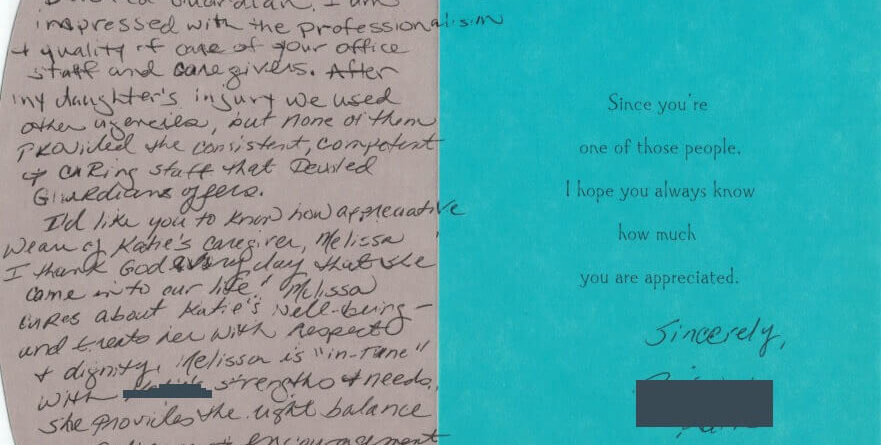 Guardian. I am
impressed with the professionalism
+ quality of care of your office
staff and caregivers. After
my daughter's injury we used
other agencies, but none of them
provided the consistent, competent
+ caring staff that Devoted
Guardians offers.
I'd like you to know how appreciative
we are of Katie's caregiver, Melissa
I thank God every day that she
came in to our life" Melissa
cares about Katie's well-being -
and treats her with respect
+ dignity. Melissa is "in-tune"
with strengths + needs,
she provides the right balance
encouragement
Since you're
one of those people,
I hope you always know
how much
you are appreciated.
Sincerely,